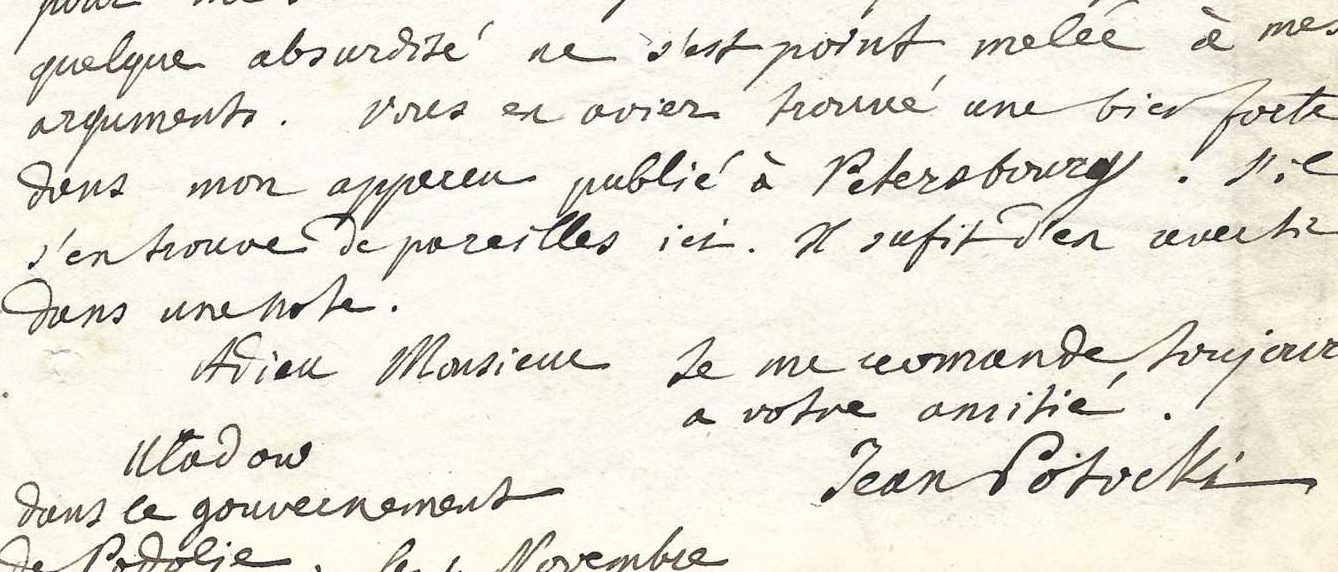 pour mes
quelque absurdité ne s'est point melée à mes
arguments. Vous en aviez trouvé une bien forte
dans mon appercu publié à Petersbourg. S'il
s'en trouve de pareilles ici. Il sufit d'en avertir
dans une note.
Adieu Monsieur Je me recomande toujours
a votre amitié.
Uladow Jean Potocki
dans le gouvernement
de Podolie, Novembre